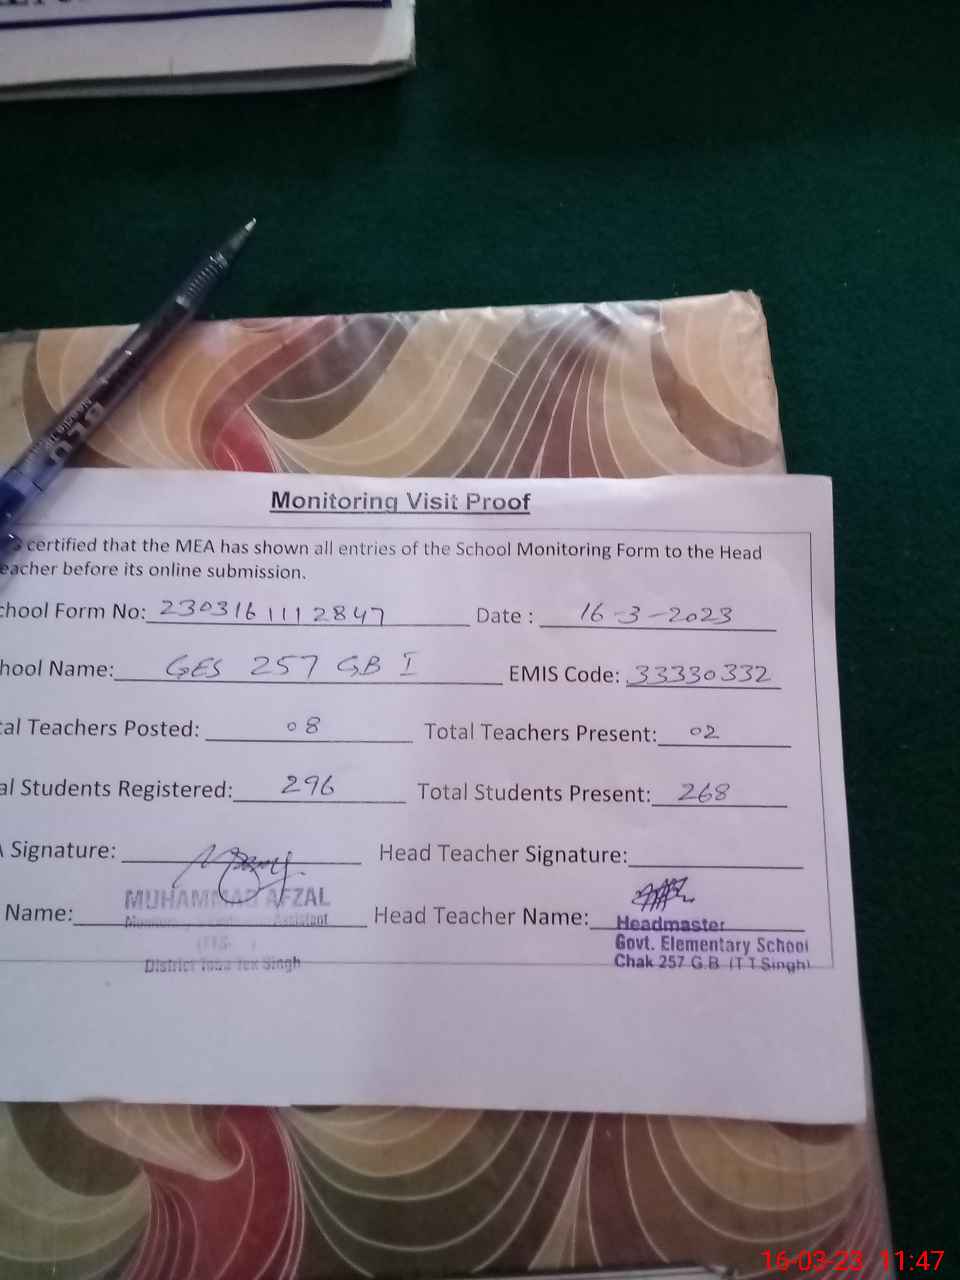 Monitoring Visit Proof
certified that the MEA has shown all entries of the School Monitoring Form to the Head
eacher before its online submission.
chool Form No: 2303161112847 Date : 16-3-2023
hool Name: GES 257 GB I EMIS Code: 33330332
tal Teachers Posted: 08 Total Teachers Present: 02
al Students Registered: 296 Total Students Present: 268
Signature: Head Teacher Signature:
MUHAMMAD AFZAL
Name: Assistant Head Teacher Name: Headmaster
Govt. Elementary School
District Toba Tek Singh Chak 257 G.B. (T.T Singh)
16-03-23 11:47